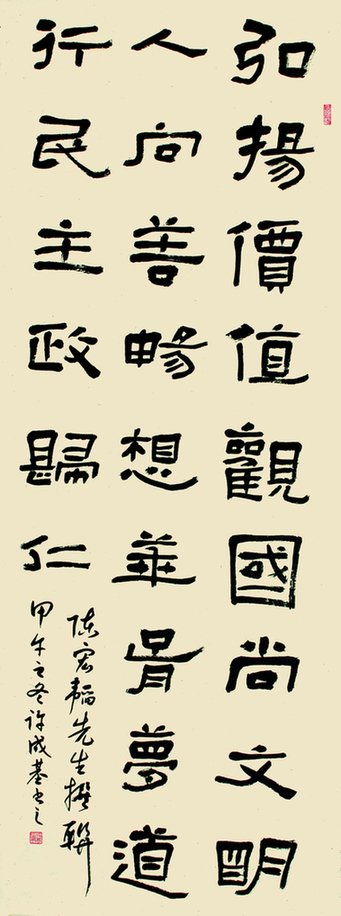 弘揚價值觀國尚文明
人向善暢想華胥夢道
行民主政歸仁
陈宏韬先生撰聯
甲午之冬许成基书之